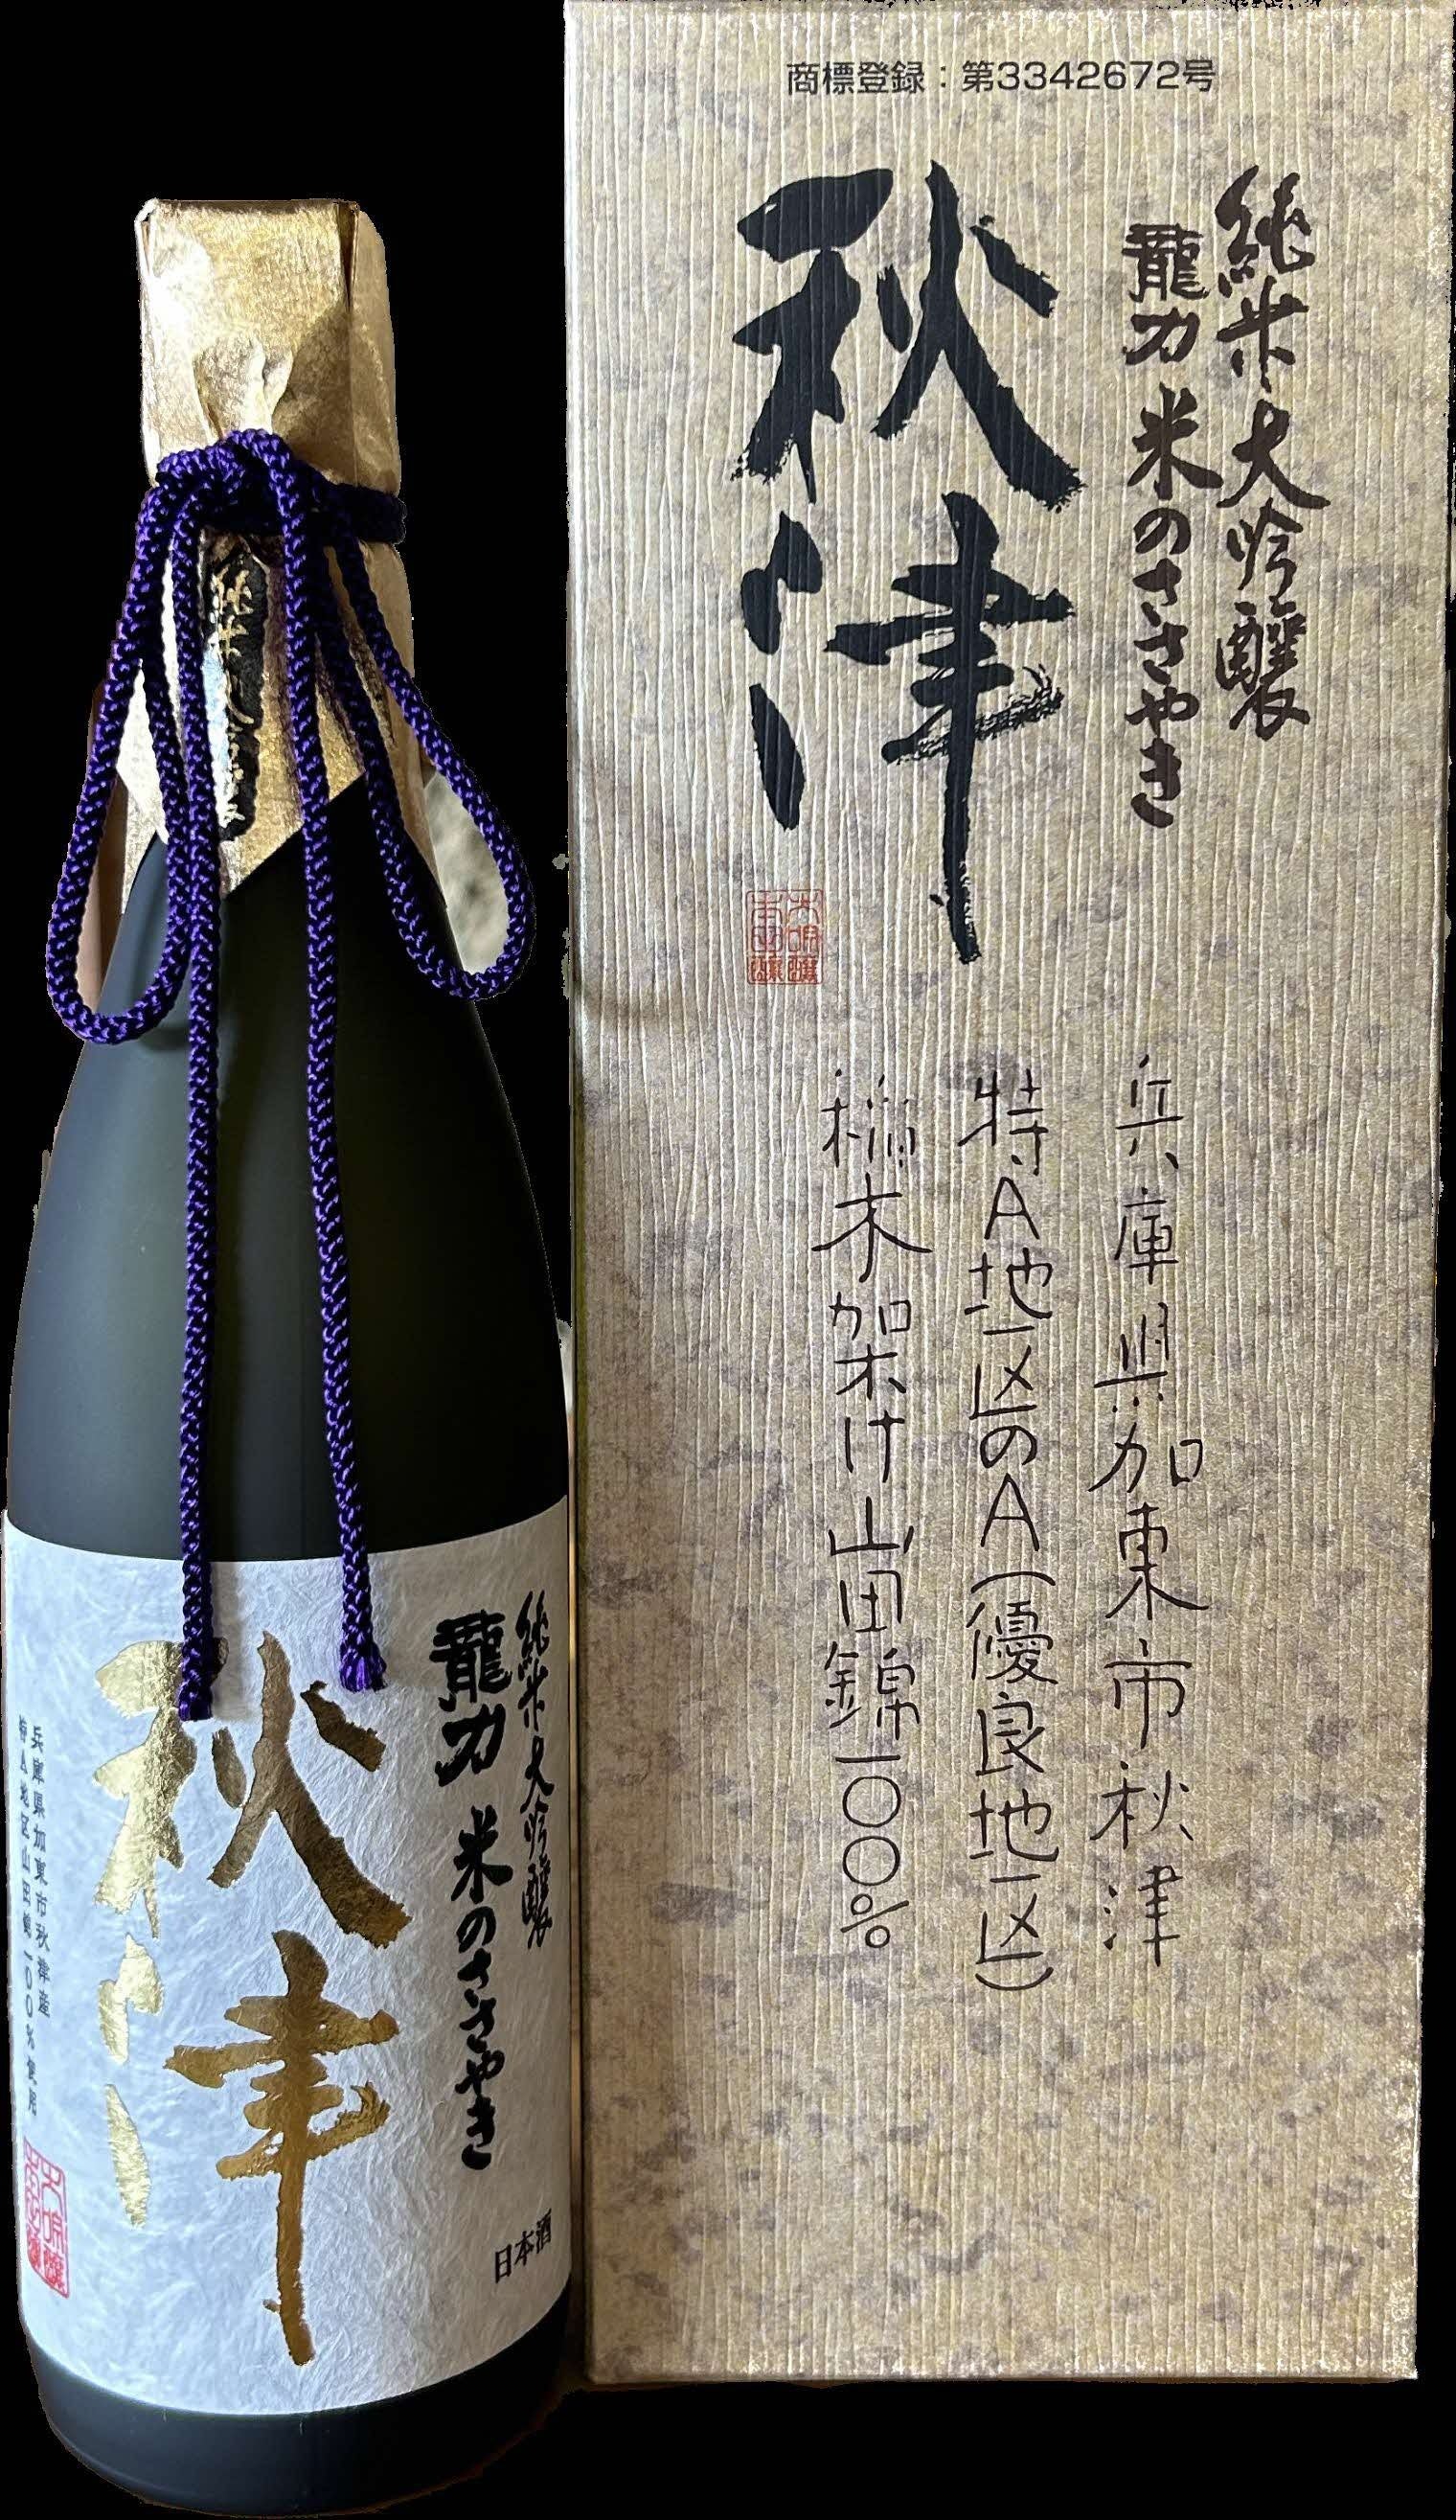 商標登録：第3342672号
純米大吟醸
龍力 米のささやき
秋津
兵庫県加東市秋津
特A地区のA(優良地区)
稲木架け山田錦一〇〇%
純米大吟醸
龍力 米のささやき
秋津
兵庫県加東市秋津産
特A地区山田錦一〇〇%使用
日本酒